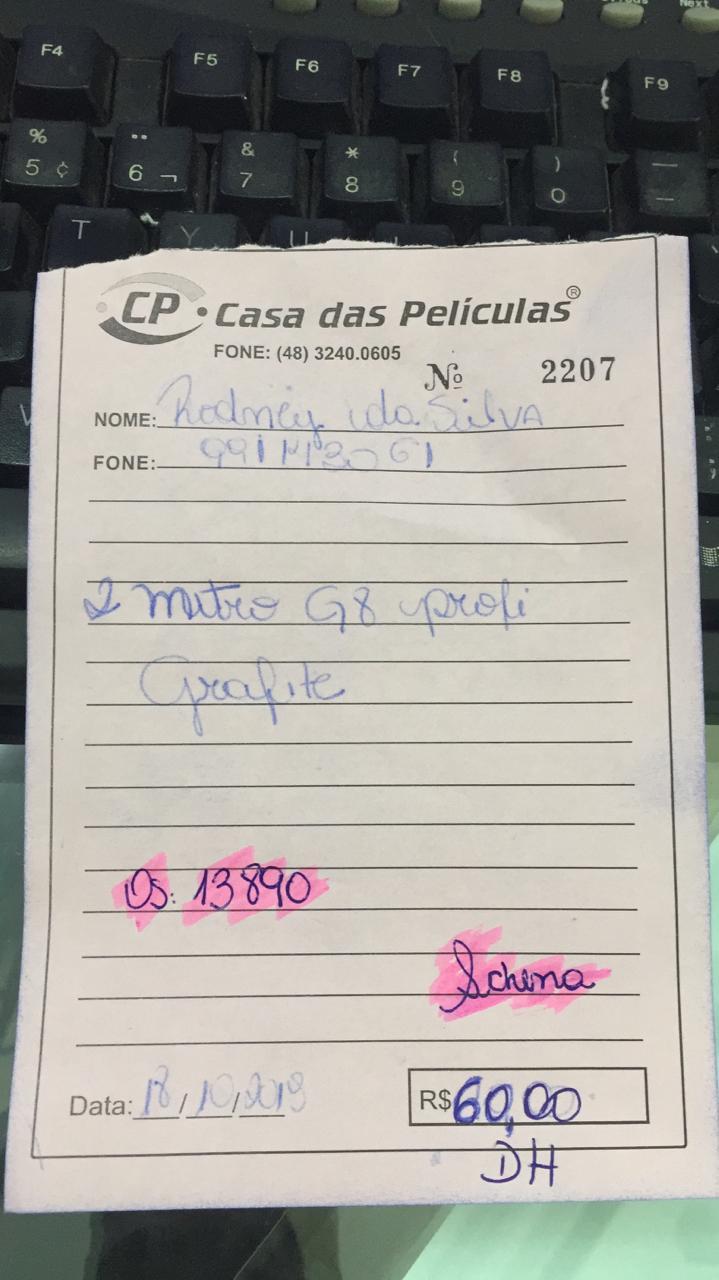 Next
F4 F5 F6 F7 F8 F9
% & * ( )
5 ¢ 6 ¬ 7 8 9 0
T Y U
CP Casa das Películas®
FONE: (48) 3240.0605
Nº 2207
NOME: Rodney da Silva
FONE:
metro G8 profi
Grafite
Os: 13890
Schena
Data: 18/10/2019 R$ 60,00
DH